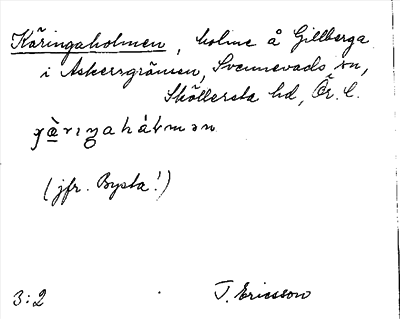 Käringaholmen, holme å Gillberga
i Askersgränsen, Svennevads sn,
Sköllersta hd, Ör. l.
(jfr. Bysta!)
3:2 T. Ericsson